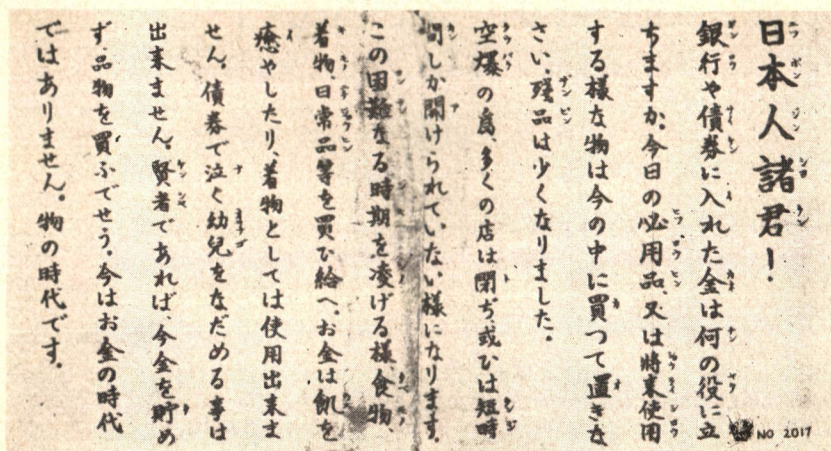 日本人諸君!
銀行や債券に入れた金は何の役に立
ちますか。今日の必用品、又は將来使用
する様な物は今の中に買つて置きな
さい。残品は少くなりました。
空爆の為、多くの店は閉ぢ、或ひは短時
間しか開けられていない様になります。
この困難なる時期を凌げる様食物、
着物、日常品等を買ひ給へ。お金は飢を
癒やしたり、着物としては使用出来ま
せん。債券で泣く幼兒をなだめる事は
出来ません。賢者であれば、今金を貯め
ず、品物を買ふでせう。今はお金の時代
ではありません。物の時代です。
NO 2017